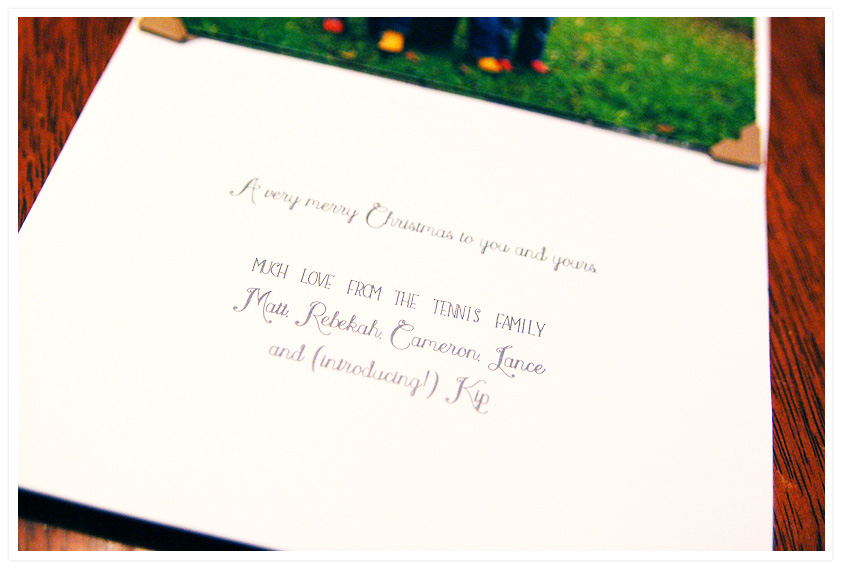 A very merry Christmas to you and yours
MUCH LOVE FROM THE TENNIS FAMILY
Matt, Rebekah, Cameron, Lance
and (introducing!) Kip